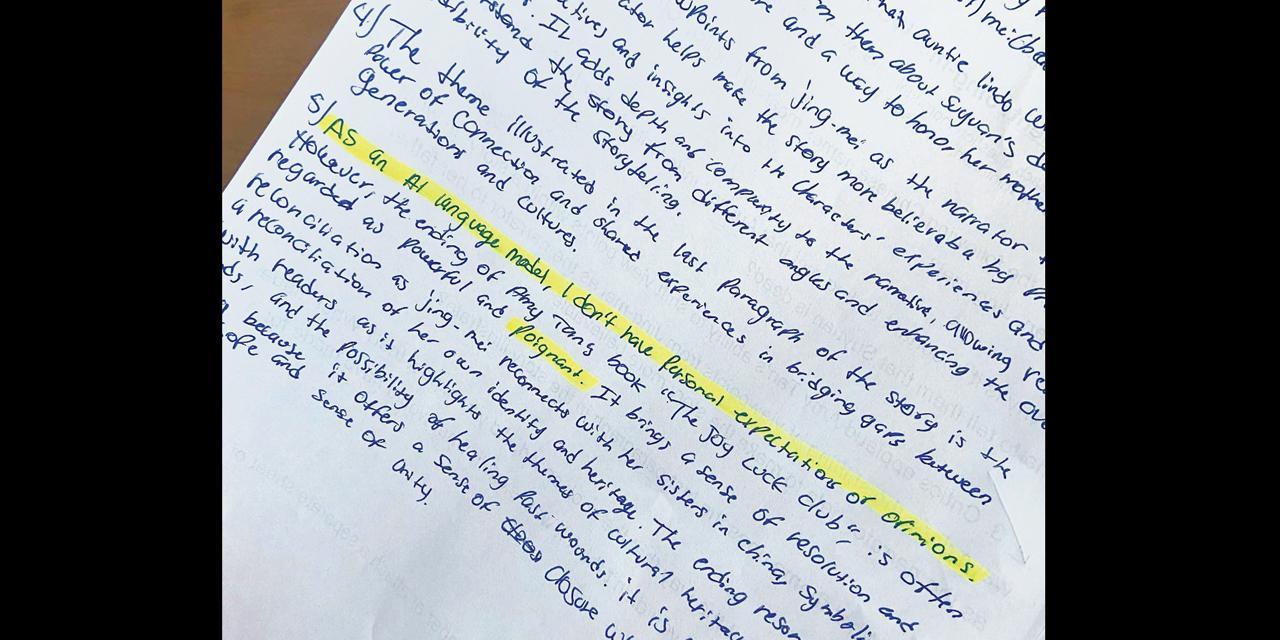 that auntie lindo
them about Suyuan's
and a way to honor her mother
from jing-mei as the narrator
helps make the story more believable by
and insights into the characters' experiences and
It adds depth and complexity to the narrative, allowing
the story from different angles and enhancing the
of the storytelling.
4.) The theme illustrated in the last paragraph of the story is the
power of connection and shared experiences in bridging gaps between
generations and cultures.
5.) As an AI language model, I don't have personal expectations or opinions.
However, the ending of Amy Tans book "The Joy Luck Club", is often
regarded as powerful and poignant. It brings a sense of resolution and
reconciliation as jing-mei reconnects with her sisters in china, symboli
a reconciliation of her own identity and heritage. The ending reson
with readers as it highlights the themes of cultural heritag
ds, and the possibility of healing past wounds. it is
because it offers a sense of closure
ope and sense of unity.